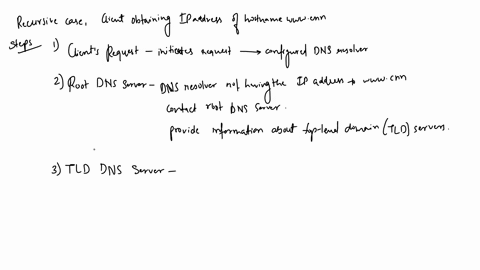 Recursive case, Client obtaining IP address of hostname www.cnn
Steps 1) Client's Request - initiates request → configured DNS resolver
2) Root DNS Server - DNS resolver not having the IP address → www.cnn
contact root DNS Server.
provide information about top-level domain (TLD) servers.
3) TLD DNS Server -